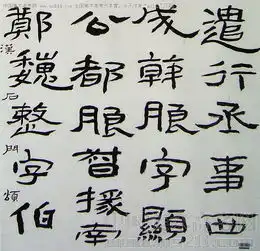 遣行丞事西
成韓朖字顯
公都朖督掾南
鄭魏整字伯
漢石門頌